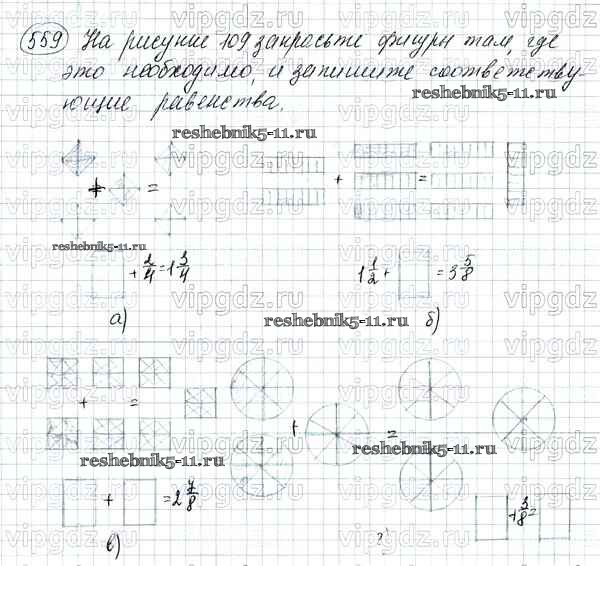 559 На рисунке 109 закрасьте фигуры там, где
это необходимо, и запишите соответству-
ющие равенства.
reshebnik5-11.ru
reshebnik5-11.ru
+ =
+ =
reshebnik5-11.ru
+ 2/4 = 1 3/4
1 1/2 + = 3 5/8
а)
reshebnik5-11.ru
б)
+ =
+ =
reshebnik5-11.ru
reshebnik5-11.ru
+ = 2 7/8
+ 3/8 =
в)
г)
vipgdz vipgdz vipgdz vipgdz